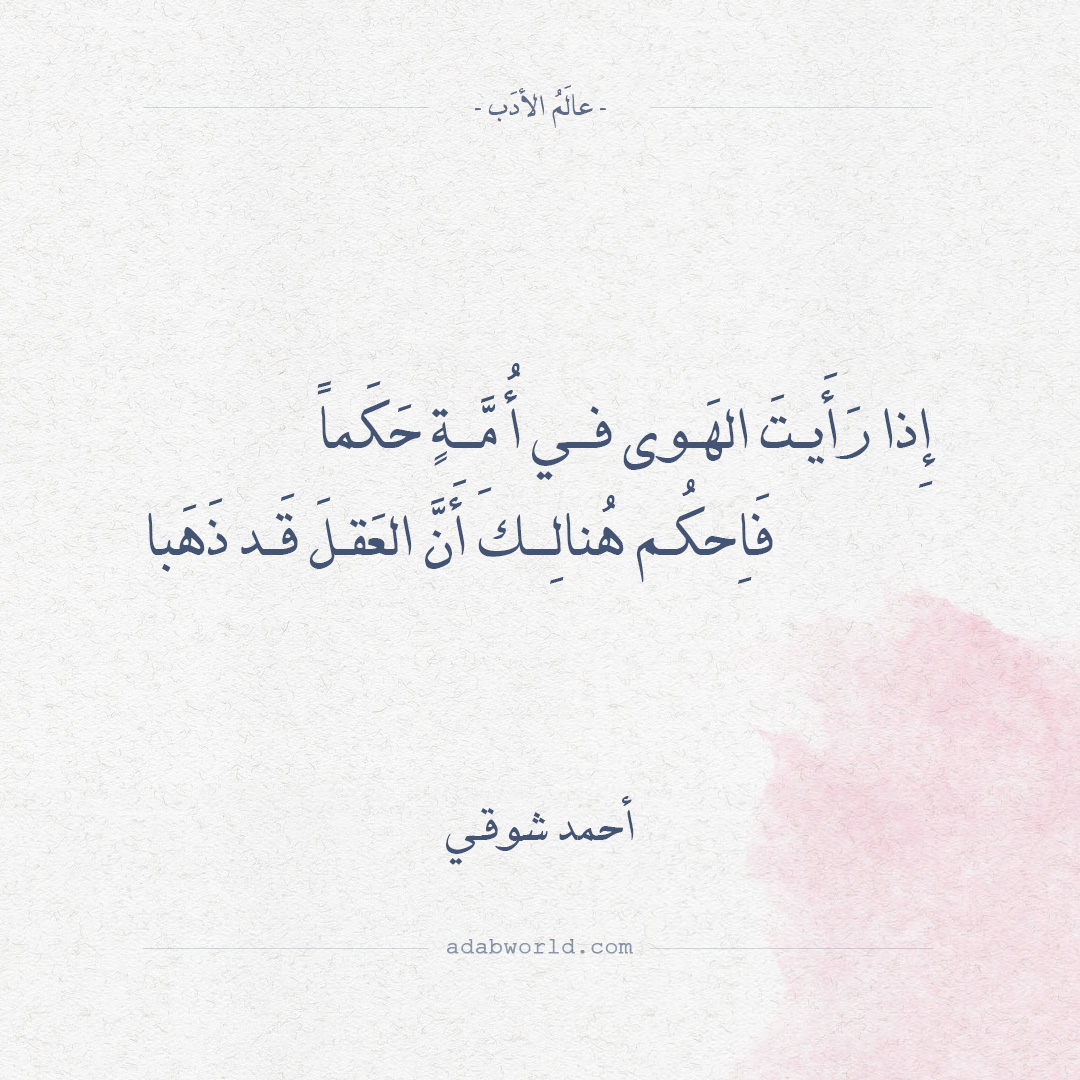 - عالَمُ الأدَب -
إِذا رَأَيتَ الهَوى في أُمَّةٍ حَكَماً
فَاِحكُم هُنالِكَ أَنَّ العَقلَ قَد ذَهَبا
أحمد شوقي
adabworld.com